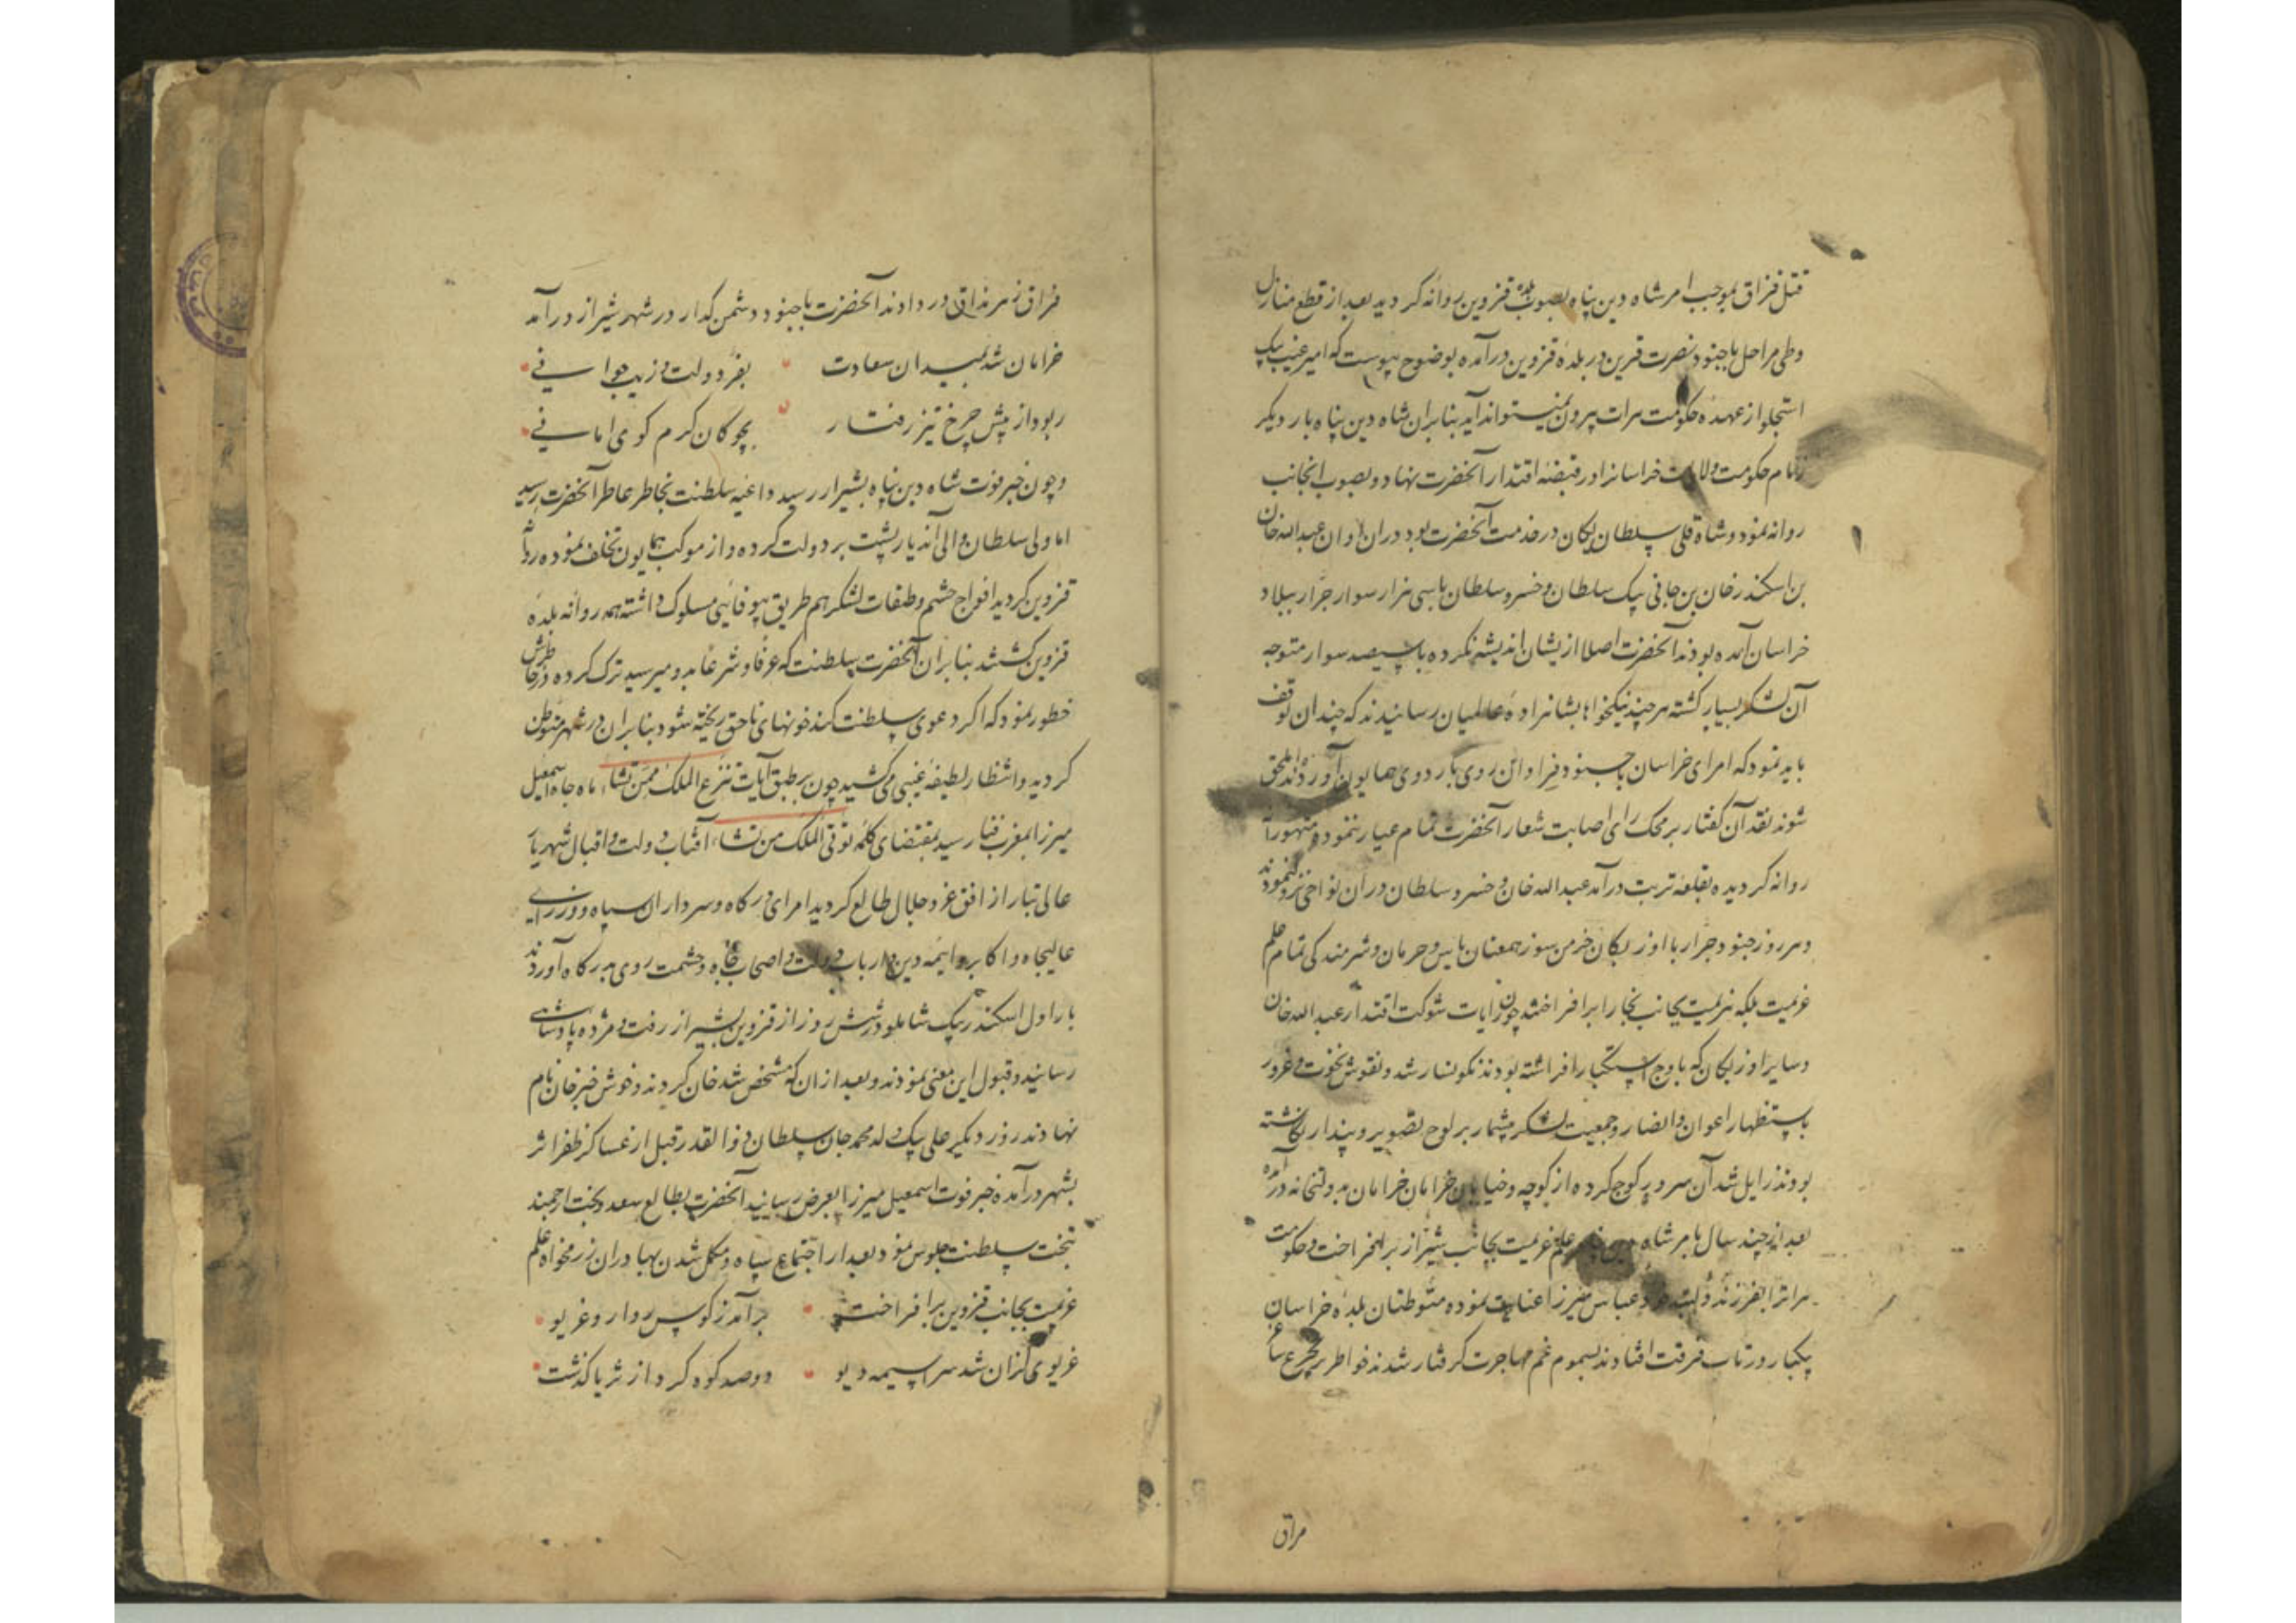 قتل قزاق بموجب امر شاه دین پناه بصوب بلده قزوین روانه کردید بعد از قطع منازل
وطی مراحل با جنود نصرت قرین در بلدهٔ قزوین درآمده بوضوح پیوست که امیر غیب بیک
استجلو از عهدهٔ حکومت هرات بیرون نمیتواند آید بنابران شاه دین پناه بار دیکر
زمام حکومت ولایت خراسانرا در قبضهٔ اقتدار آنحضرت نهاد و بصوب آنجانب
روانه نمود و شاه قلی سلطان یکان در خدمت آنحضرت بود دران اوان عبدالله خان
بن اسکندر خان بن جانی بیک سلطان و خسرو سلطان با سی هزار سوار جرّار ببلاد
خراسان آمده بودند آنحضرت اصلا ازیشان اندیشه نکرده با سیصد سوار متوجه
آن لشکر بسیار کشته هر چند نیکخواهان بشاهزادهٔ عالمیان رسانیدند که چندان توقف
باید نمود که امرای خراسان با جنود فراوان روی باردوی همایون آورده ملحق
شوند نقد آن کفتار بر محک رای اصابت شعار آنحضرت تمام عیار ننمود متهورا
روانه کردیده بقلعهٔ تربت درآمد عبدالله خان و خسرو سلطان دران نواحی نزول نمودند
و هر روز جنود جرّار با اوزبکان خرمن سوز همعنان یاس و حرمان و شرمندکی تمام علم
عزیمت بلکه هزیمت بجانب بخارا برافراختند چون رایات شوکت اقتدار عبدالله خان
و سایر اوزبکان که باوج استکبار افراشته بودند نکونسار شد و نقوش نخوت و غرور
باستظهار اعوان و انصار و جمعیت لشکر بیشمار بر لوح تصویر و پندار نکاشته
بودند زایل شد آن سرور کوچ کرده از کوچه و خیابان خرامان خرامان بدولتخانه درآمده
بعد از چند سال بامر شاه دین پناه علم عزیمت بجانب شیراز برافراخت و حکومت
هراترا بفرزند خود عباس میرزا عنایت نموده متوطنان بلدهٔ خراسان
یکبار در تاب فرقت افتادند بسموم غم مهاجرت کرفتار شدند خواطر
فراق
فراق زهر مذاق در دادند آنحضرت با جنود دشمن کداز در شهر شیراز درآمد
خرامان شد بمیدان سعادت بفرّ دولت و زیب جوانی
ربود از پیش چرخ تیز رفتار بچوکان کرم کوی امانی
و چون خبر فوت شاه دین پناه بشیراز رسید داعیهٔ سلطنت بخاطر عاطر آنحضرت رسید
اما ولی سلطان والی آندیار پشت بر دولت کرده و از موکب همایون تخلف نموده روانه
قزوین کردید افواج حشم و طبقات لشکر هم طریق بیوفائی مسلوک داشته همه روانه بلدهٔ
قزوین کشتند بنابران آنحضرت سلطنت که عرفا و شرعا بدو میرسید ترک کرده در خاطرش
خطور نمود که اکر دعوی سلطنت کند خونهای ناحق ریخته شود بنابران در شهر متوطن
کردید و انتظار لطیفهٔ غیبی می کشید چون بر طبق آیات تنزع الملک ممن تشاء ماه جاه اسمعیل
میرزا بمغرب فنا رسید بمقتضای کلمه تؤتی الملک من تشاء آفتاب دولت و اقبال شهریار
عالی تبار از افق عز و جلال طالع کردید امرای درکاه و سرداران سپاه و وزرای
عالیجاه و اکابر و ایمه دین و ارباب دولت و اصحاب جاه و حشمت روی بدرکاه آوردند
بار اول اسکندر بیک شاملو در شش روز از قزوین بشیراز رفت و مژده پادشاهی
رسانید و قبول این معنی نمودند و بعد از ان که مشخص شد خان کردند و خوش خبر خان نام
نهادند روز دیکر علی بیک ولد محمد جان سلطان ذوالقدر قبل از عساکر ظفر اثر
بشهر درآمده خبر فوت اسمعیل میرزا بعرض رسانید آنحضرت بطالع سعد و بخت ارجمند
بتخت سلطنت جلوس نمود بعد از اجتماع سپاه و مکمل شدن بهادران رزمخواه علم
عزیمت بجانب قزوین برافراخت برآمد ز کوس روارو غریو
غریوی کزان شد سراسیمه دیو دو صد کوه کرد از ثریا کذشت